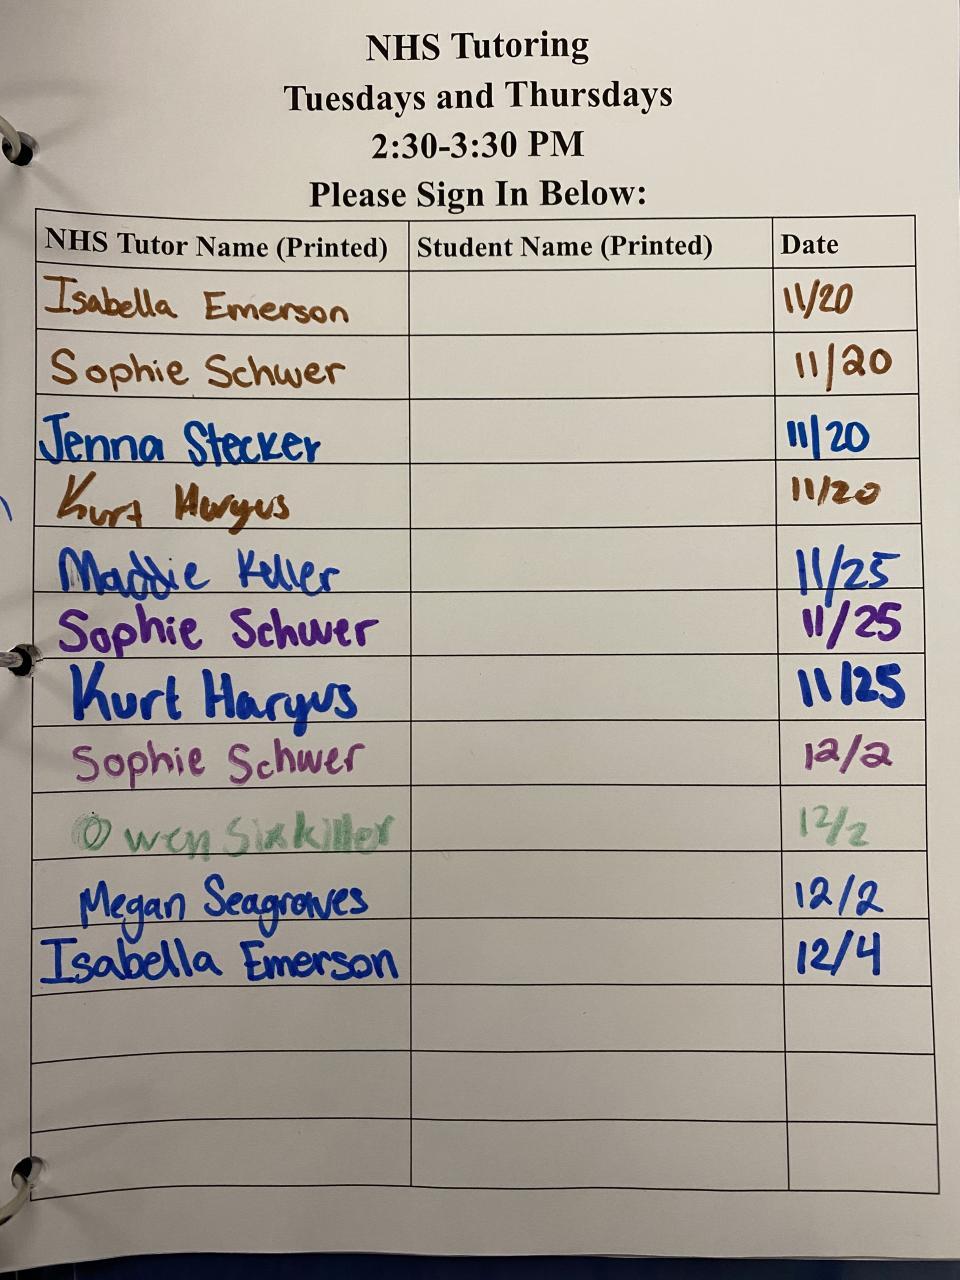 NHS Tutoring
Tuesdays and Thursdays
2:30-3:30 PM
Please Sign In Below:
NHS Tutor Name (Printed) Student Name (Printed) Date
Isabella Emerson 11/20
Sophie Schwer 11/20
Jenna Stecker 11/20
Kurt Hargus 11/20
Maddie Keller 11/25
Sophie Schwer 11/25
Kurt Hargus 11/25
Sophie Schwer 12/2
Owen Sixkiller 12/2
Megan Seagraves 12/2
Isabella Emerson 12/4